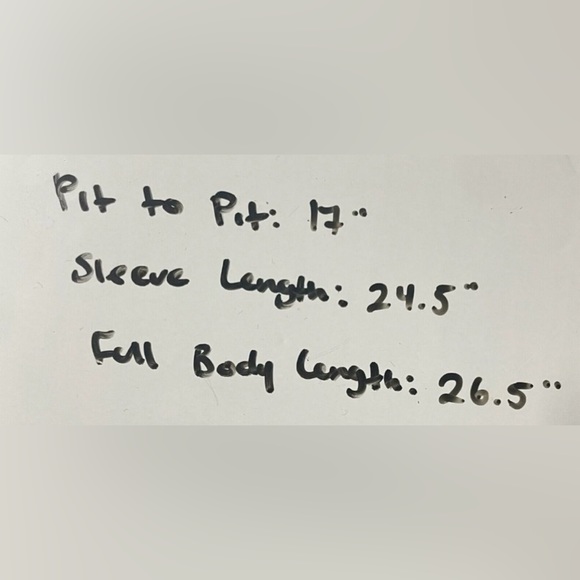 Pit to Pit: 17"
Sleeve Length: 24.5"
Full Body Length: 26.5"